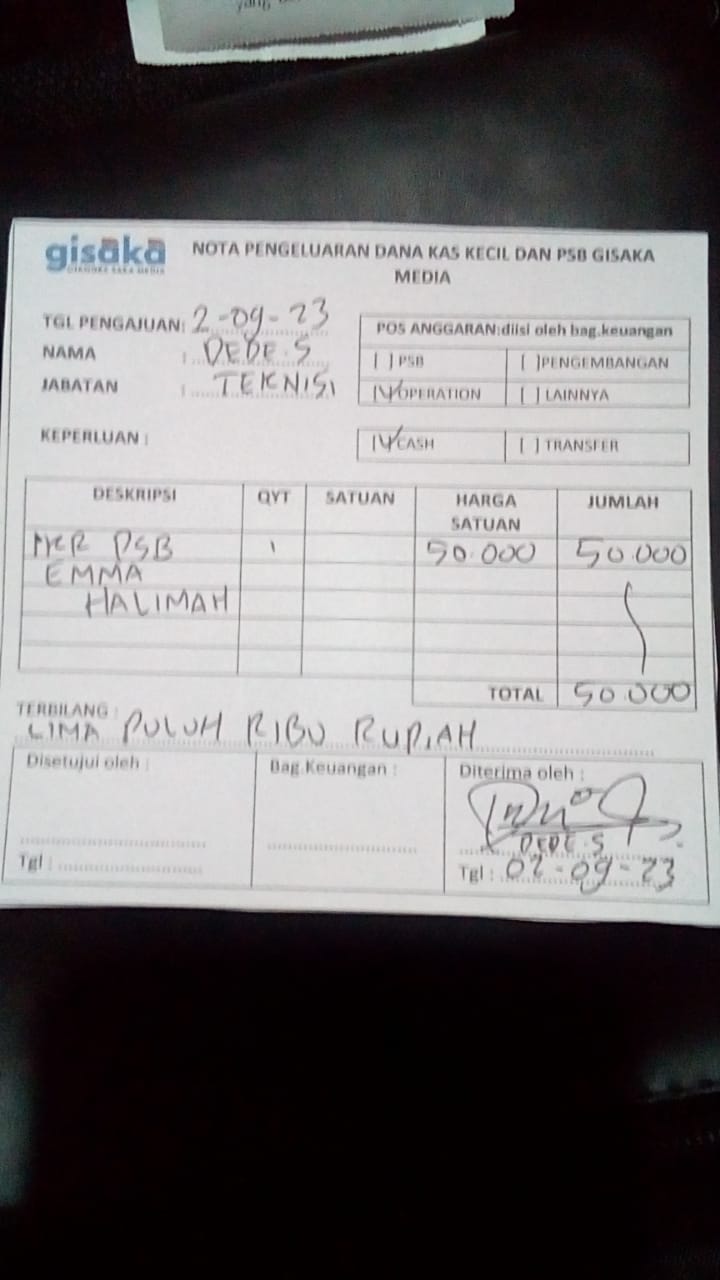 gisaka
NOTA PENGELUARAN DANA KAS KECIL DAN PSB GISAKA
MEDIA
TGL PENGAJUAN: 2-09-23
NAMA : DEDE.S
JABATAN : TEKNISI
POS ANGGARAN:diisi oleh bag.keuangan
[ ] PSB [ ]PENGEMBANGAN
[V]OPERATION [ ] LAINNYA
KEPERLUAN :
[V]CASH [ ] TRANSFER
DESKRIPSI QYT SATUAN HARGA SATUAN JUMLAH
PSB 1 50.000 50.000
EMMA
HALIMAH
TOTAL 50.000
TERBILANG :
LIMA PULUH RIBU RUPIAH
Disetujui oleh : Bag.Keuangan : Diterima oleh :
DEDE.S
Tgl : Tgl : 02-09-23